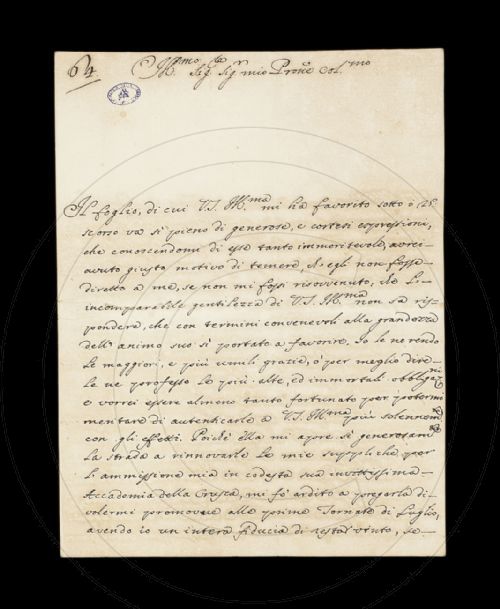 64
Ill.mo Sig. Sig.r mio Prone Col.mo
Il foglio, di cui V.S. Ill.ma mi ha favorito sotto i 28
scorso va sì pieno di generose, e cortesi espressioni,
che conoscendomi di esse tanto immeritevole, avrei
avuto giusto motivo di temere, ch'egli non fosse
diretto a me, se non mi fossi risovvenuto, che l'
incomparabile gentilezza di V.S. Ill.ma non sa ris-
pondere, che con termini convenevoli alla grandezza
dell'animo suo si portato a favorire. Io le ne rendo
le maggiori, e più umili grazie, o per meglio dire
le ne professo le più alte, ed immortali obbligaz.ni
e vorrei essere almeno tanto fortunato per poter
mentare di autenticarle a V.S. Ill.ma più solennem
con gli effetti. Poichè Ella mi apre sì generosam
la strada a rinnovarle le mie suppliche per
l'ammissione mia in codesta sua invittissima
Accademia della Crusca, mi fò ardito a pregarla di
volermi promovere alle prime Tornate di Luglio,
avendo io un intera fiducia di restar vinto, se